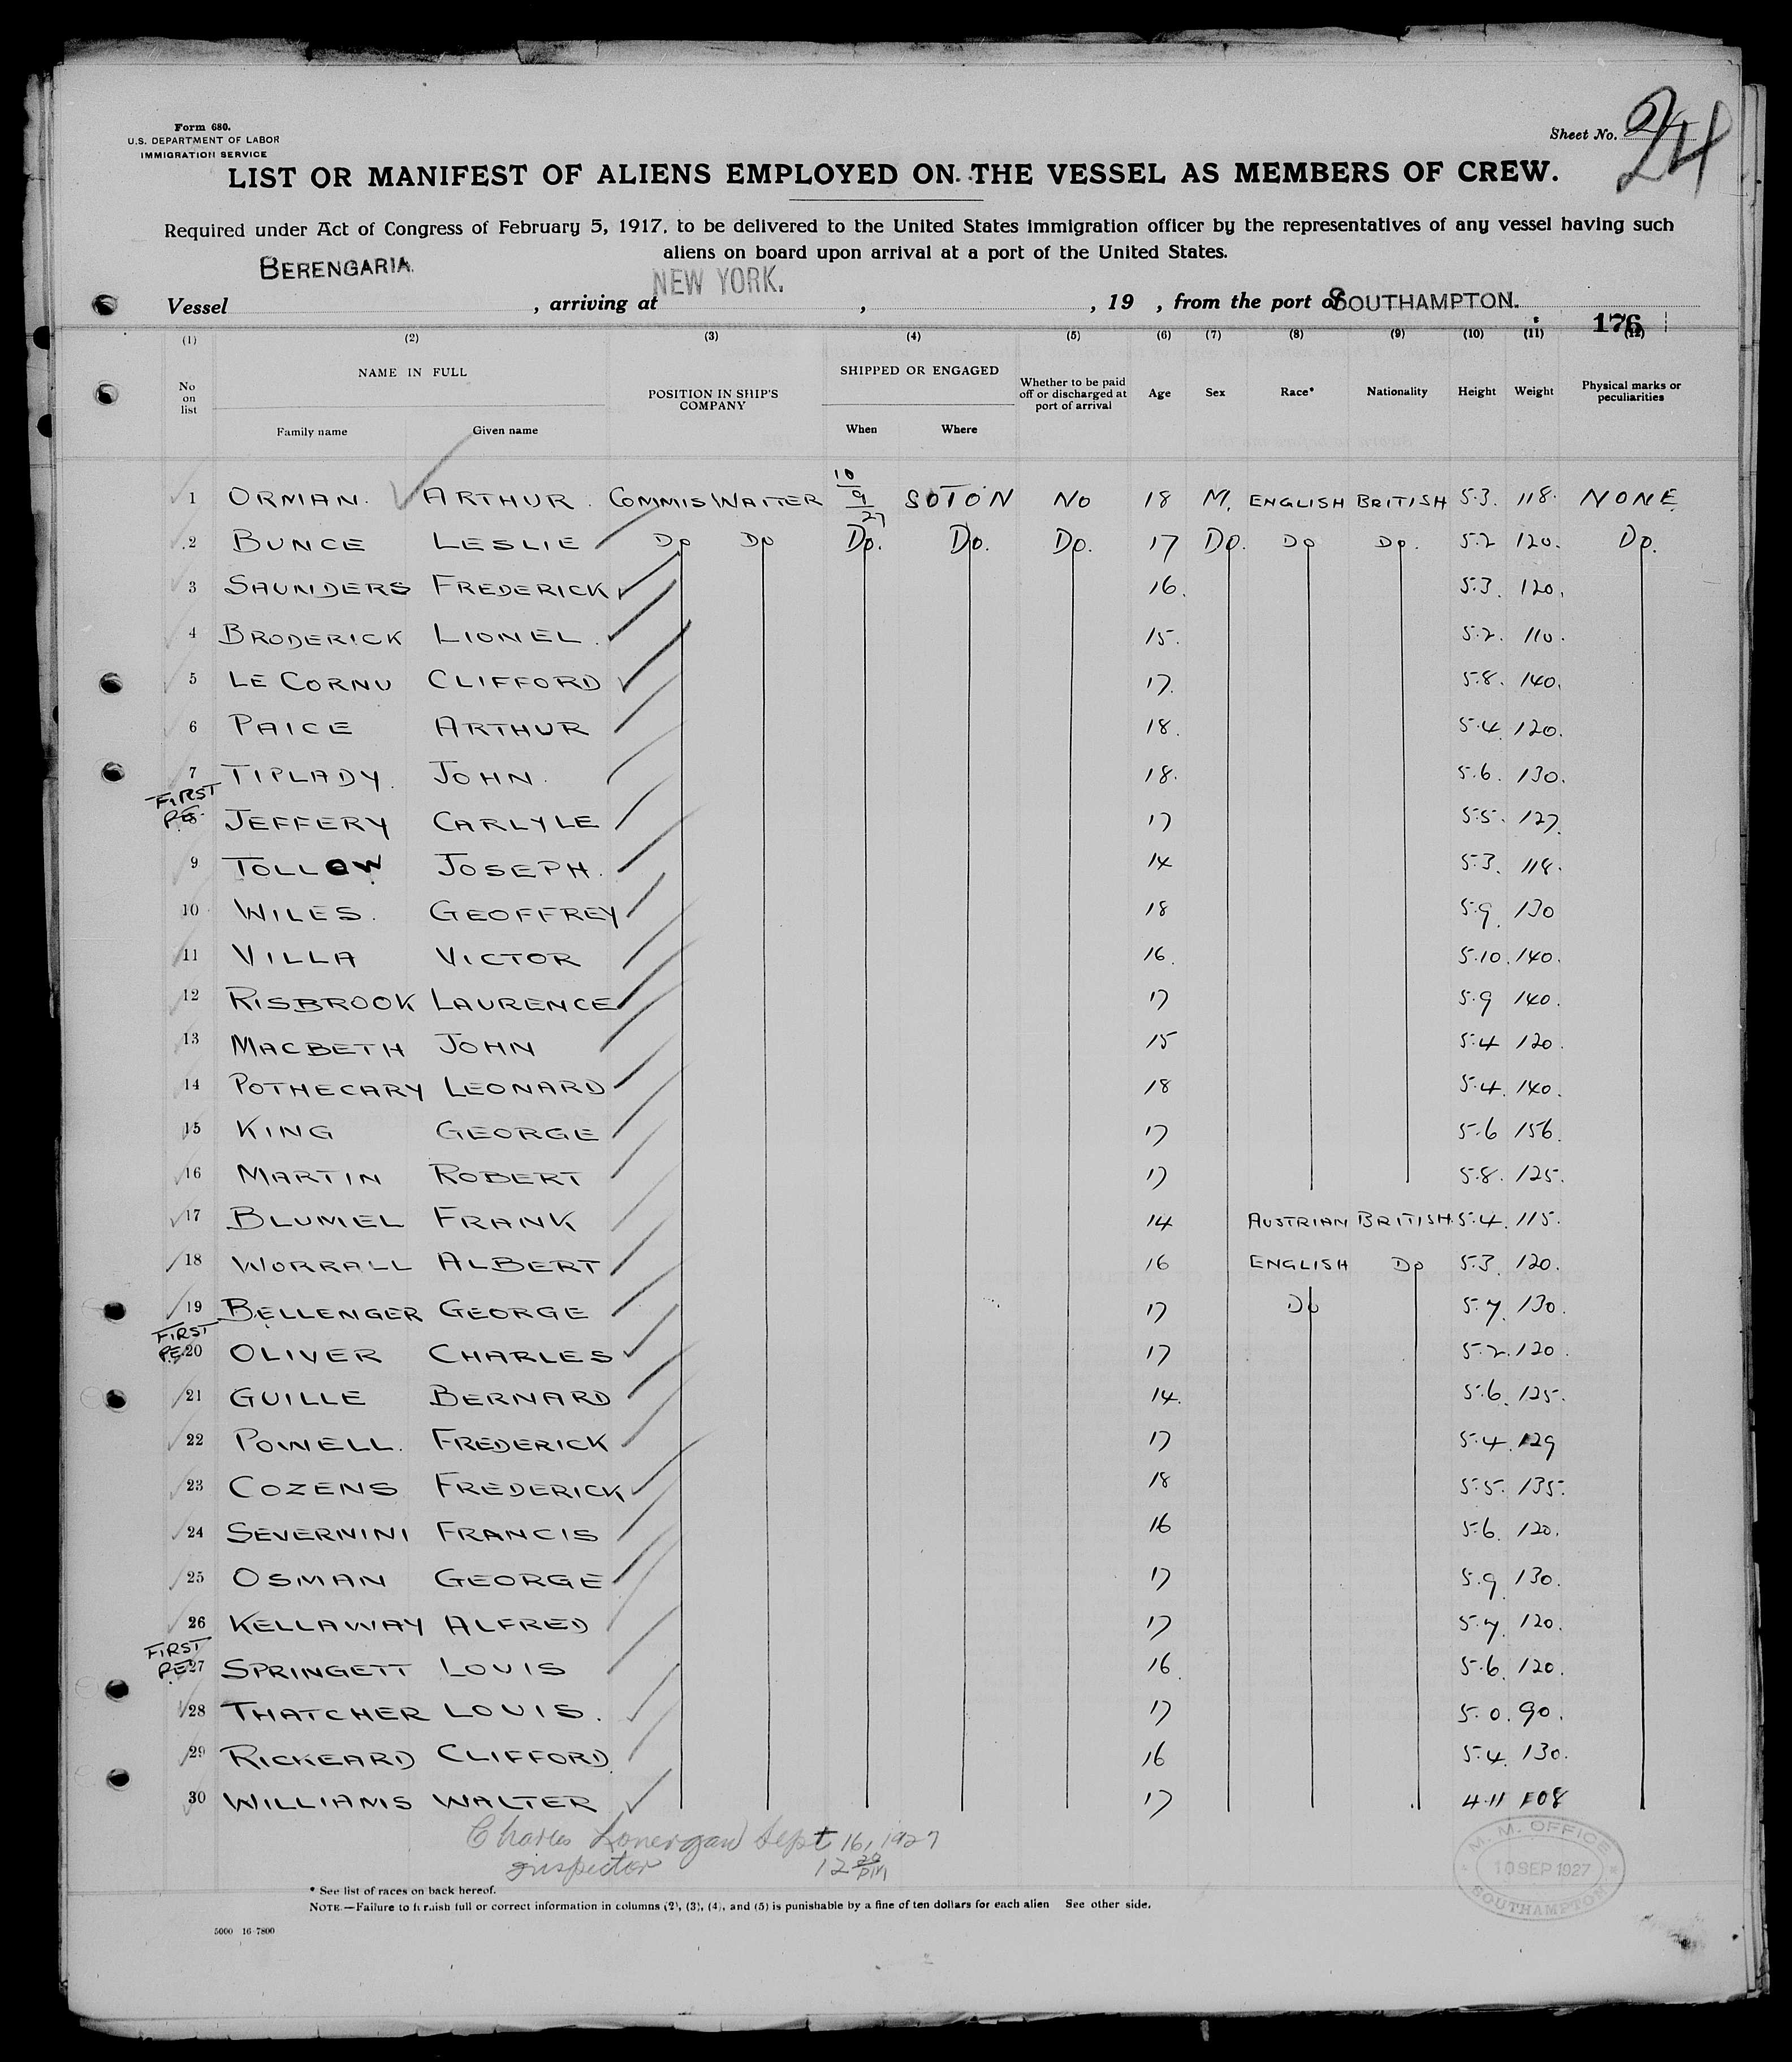 Form 680.
U.S. DEPARTMENT OF LABOR
IMMIGRATION SERVICE
Sheet No. 24
LIST OR MANIFEST OF ALIENS EMPLOYED ON THE VESSEL AS MEMBERS OF CREW.
Required under Act of Congress of February 5, 1917, to be delivered to the United States immigration officer by the representatives of any vessel having such
aliens on board upon arrival at a port of the United States.
Vessel BERENGARIA, arriving at NEW YORK. , , 19 , from the port of SOUTHAMPTON.
176
(1) (2) (3) (4) (5) (6) (7) (8) (9) (10) (11) (12)
No on list NAME IN FULL Family name Given name POSITION IN SHIP'S COMPANY SHIPPED OR ENGAGED When Where Whether to be paid off or discharged at port of arrival Age Sex Race* Nationality Height Weight Physical marks or peculiarities
1 ORMAN. ARTHUR. COMMIS WAITER 10/9/27 SOTON NO 18 M. ENGLISH BRITISH 5.3. 118. NONE
2 BUNCE LESLIE Do Do Do. Do. Do. 17 Do. Do Do. 5.2 120. Do.
3 SAUNDERS FREDERICK 16. 5.3. 120.
4 BRODERICK LIONEL. 15. 5.2. 110.
5 LE CORNU CLIFFORD 17. 5.8. 140.
6 PAICE ARTHUR 18. 5.4 120.
7 TIPLADY. JOHN. 18. 5.6. 130.
FIRST
P.E. 8 JEFFERY CARLYLE 17 5.5. 127.
9 TOLLOW JOSEPH. 14 5.3. 118.
10 WILES. GEOFFREY 18 5.9. 130
11 VILLA VICTOR 16. 5.10. 140.
12 RISBROOK LAURENCE 17 5.9 140.
13 MACBETH JOHN 15 5.4 120.
14 POTHECARY LEONARD 18 5.4. 140.
15 KING GEORGE 17 5.6 156.
16 MARTIN ROBERT 17 5.8. 125.
17 BLUMEL FRANK 14 AUSTRIAN BRITISH. 5.4. 115.
18 WORRALL ALBERT 16 ENGLISH Do 5.3. 120.
19 BELLENGER GEORGE 17 Do 5.7. 130.
FIRST
P.E. 20 OLIVER CHARLES 17 5.2. 120.
21 GUILLE BERNARD 14. 5.6. 125.
22 POWELL. FREDERICK 17 5.4. 129
23 COZENS FREDERICK 18 5.5. 135.
24 SEVERNINI FRANCIS 16 5.6. 120.
25 OSMAN GEORGE 17 5.9. 130.
26 KELLAWAY ALFRED 17 5.7. 120.
FIRST
P.E. 27 SPRINGETT LOUIS 16. 5.6. 120.
28 THATCHER LOUIS. 17 5.0. 90.
29 RICKEARD CLIFFORD. 16 5.4. 130.
30 WILLIAMS WALTER 17 4.11 108
Charles Lonergan Sept 16, 1927
Inspector 12 20 PM
M. M. OFFICE
10 SEP 1927
SOUTHAMPTON
* See list of races on back hereof.
NOTE.—Failure to furnish full or correct information in columns (2), (3), (4), and (5) is punishable by a fine of ten dollars for each alien See other side.
5000 16-7800